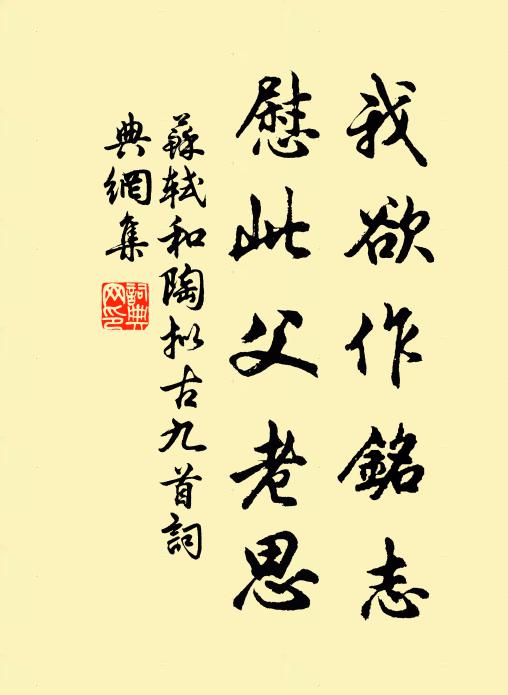 我欲作銘志
慰此父老思
蘇軾和陶擬古九首詞
典網集
詞典
网印